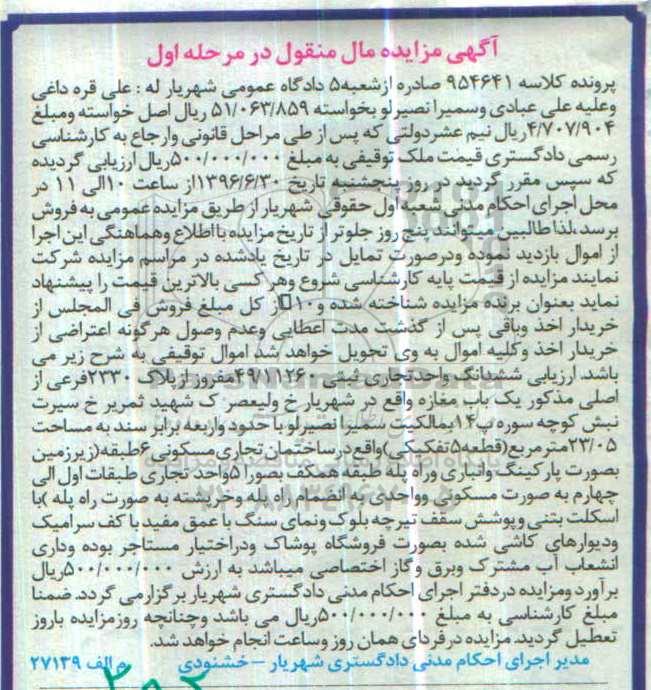 آگهی مزایده مال منقول در مرحله اول
پرونده کلاسه ۹۵۴۶۴۱ صادره ازشعبه۵ دادگاه عمومی شهریار له : علی قره داغی
وعلیه علی عبادی وسمیرا نصیرلو بخواسته ۵۱/۰۶۳/۸۵۹ ریال اصل خواسته ومبلغ
۴/۷۰۷/۹۰۴ریال نیم عشردولتی که پس از طی مراحل قانونی وارجاع به کارشناسی
رسمی دادگستری قیمت ملک توقیفی به مبلغ ۵۰۰/۰۰۰/۰۰۰ریال ارزیابی گردیده
که سپس مقرر گردید در روز پنجشنبه تاریخ ۱۳۹۶/۶/۳۰از ساعت ۱۰الی ۱۱ در
محل اجرای احکام مدنی شعبه اول حقوقی شهریار از طریق مزایده عمومی به فروش
برسد ،لذا طالبین میتوانند پنج روز جلوتر از تاریخ مزایده بااطلاع وهماهنگی این اجرا
از اموال بازدید نموده ودرصورت تمایل در تاریخ یادشده در مراسم مزایده شرکت
نمایند مزایده از قیمت پایه کارشناسی شروع وهر کسی بالاترین قیمت را پیشنهاد
نماید بعنوان برنده مزایده شناخته شده و ۱۰ از کل مبلغ فروش فی المجلس از
خریدار اخذ وباقی پس از گذشت مدت اعطایی وعدم وصول هرگونه اعتراضی از
خریدار اخذ وکلیه اموال به وی تحویل خواهد شد اموال توقیفی به شرح زیر می
باشد. ارزیابی ششدانگ واحد تجاری ثبتی ۴۹۱۱۲۶۰مفروز از پلاک ۲۳۳۰فرعی از
اصلی مذکور یک باب مغازه واقع در شهریار خ ولیعصر ک شهید ثمریر خ سیرت
نبش کوچه سوره پ۱۴بمالکیت سمیرا نصیرلو با حدود واربعه برابر سند به مساحت
۲۳/۰۵مترمربع(قطعه۵تفکیکی)واقع درساختمان تجاری مسکونی ۶طبقه(زیرزمین
بصورت پارکینگ وانباری وراه پله طبقه همکف بصورا ۵واحد تجاری طبقات اول الی
چهارم به صورت مسکونی وواحدی به انضمام راه پله وخرپشته به صورت راه پله )با
اسکلت بتنی وپوشش سقف تیرچه بلوک ونمای سنگ با عمق مفید با کف سرامیک
ودیوارهای کاشی شده بصورت فروشگاه پوشاک ودراختیار مستاجر بوده وداری
انشعاب آب مشترک وبرق وگاز اختصاصی میباشد به ارزش ۵۰۰/۰۰۰/۰۰۰ریال
برآورد ومزایده دردفتر اجرای احکام مدنی دادگستری شهریار برگزارمی گردد. ضمنا
مبلغ کارشناسی به مبلغ ۵۰۰/۰۰۰/۰۰۰ریال می باشد وچنانچه روزمزایده باروز
تعطیل گردید، مزایده در فردای همان روز وساعت انجام خواهد شد.
مدیر اجرای احکام مدنی دادگستری شهریار –خشنودی م الف ۲۷۱۳۹